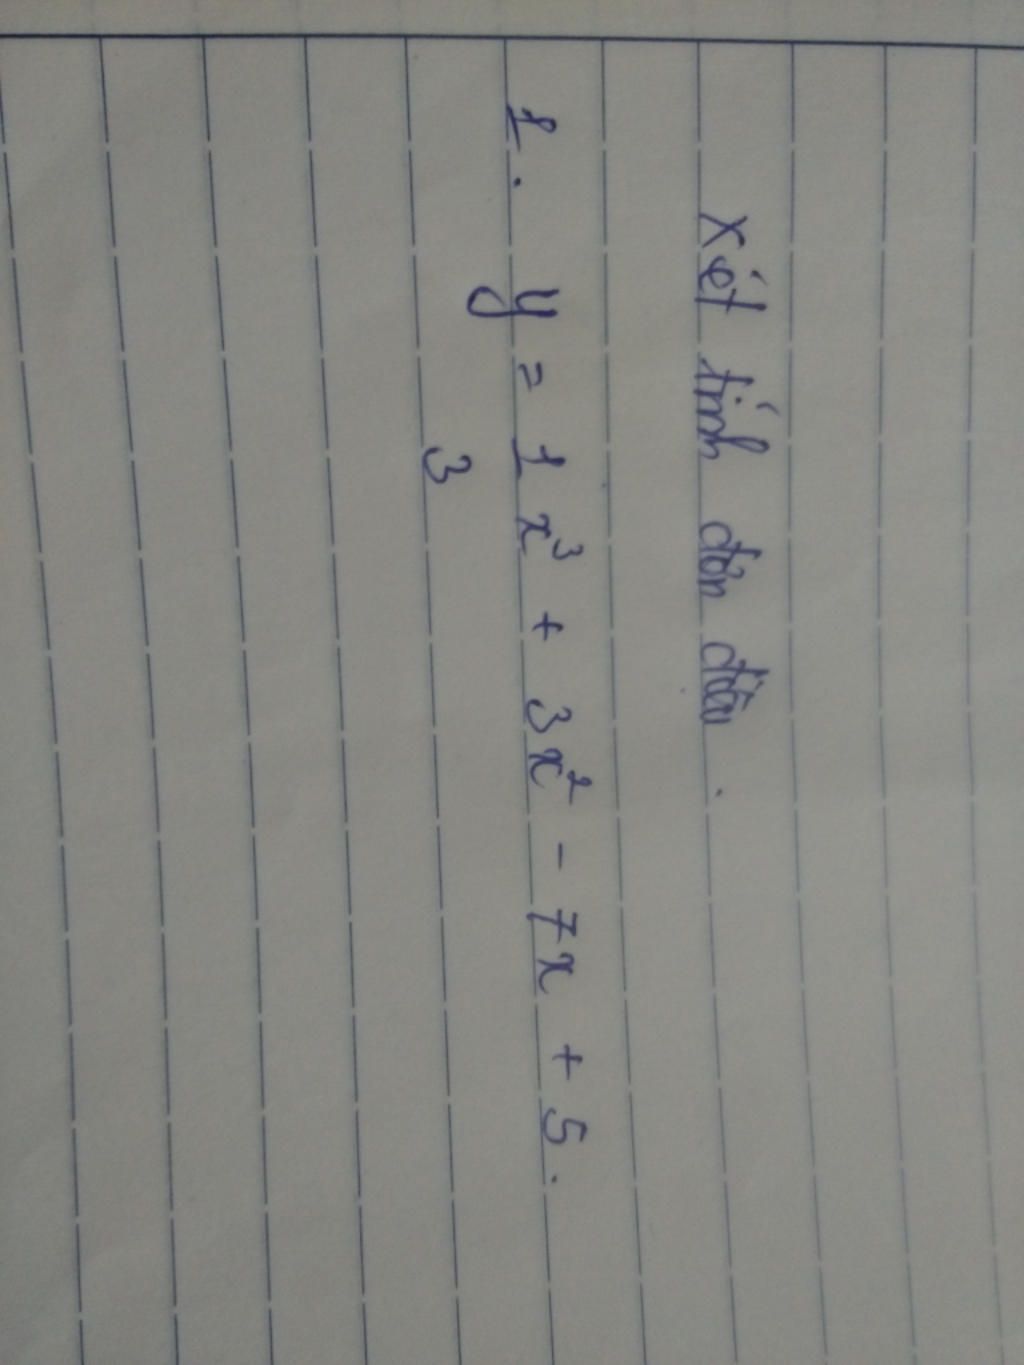 Xét tính đơn điệu.
1. y = 1/3 x³ + 3x² - 7x + 5.